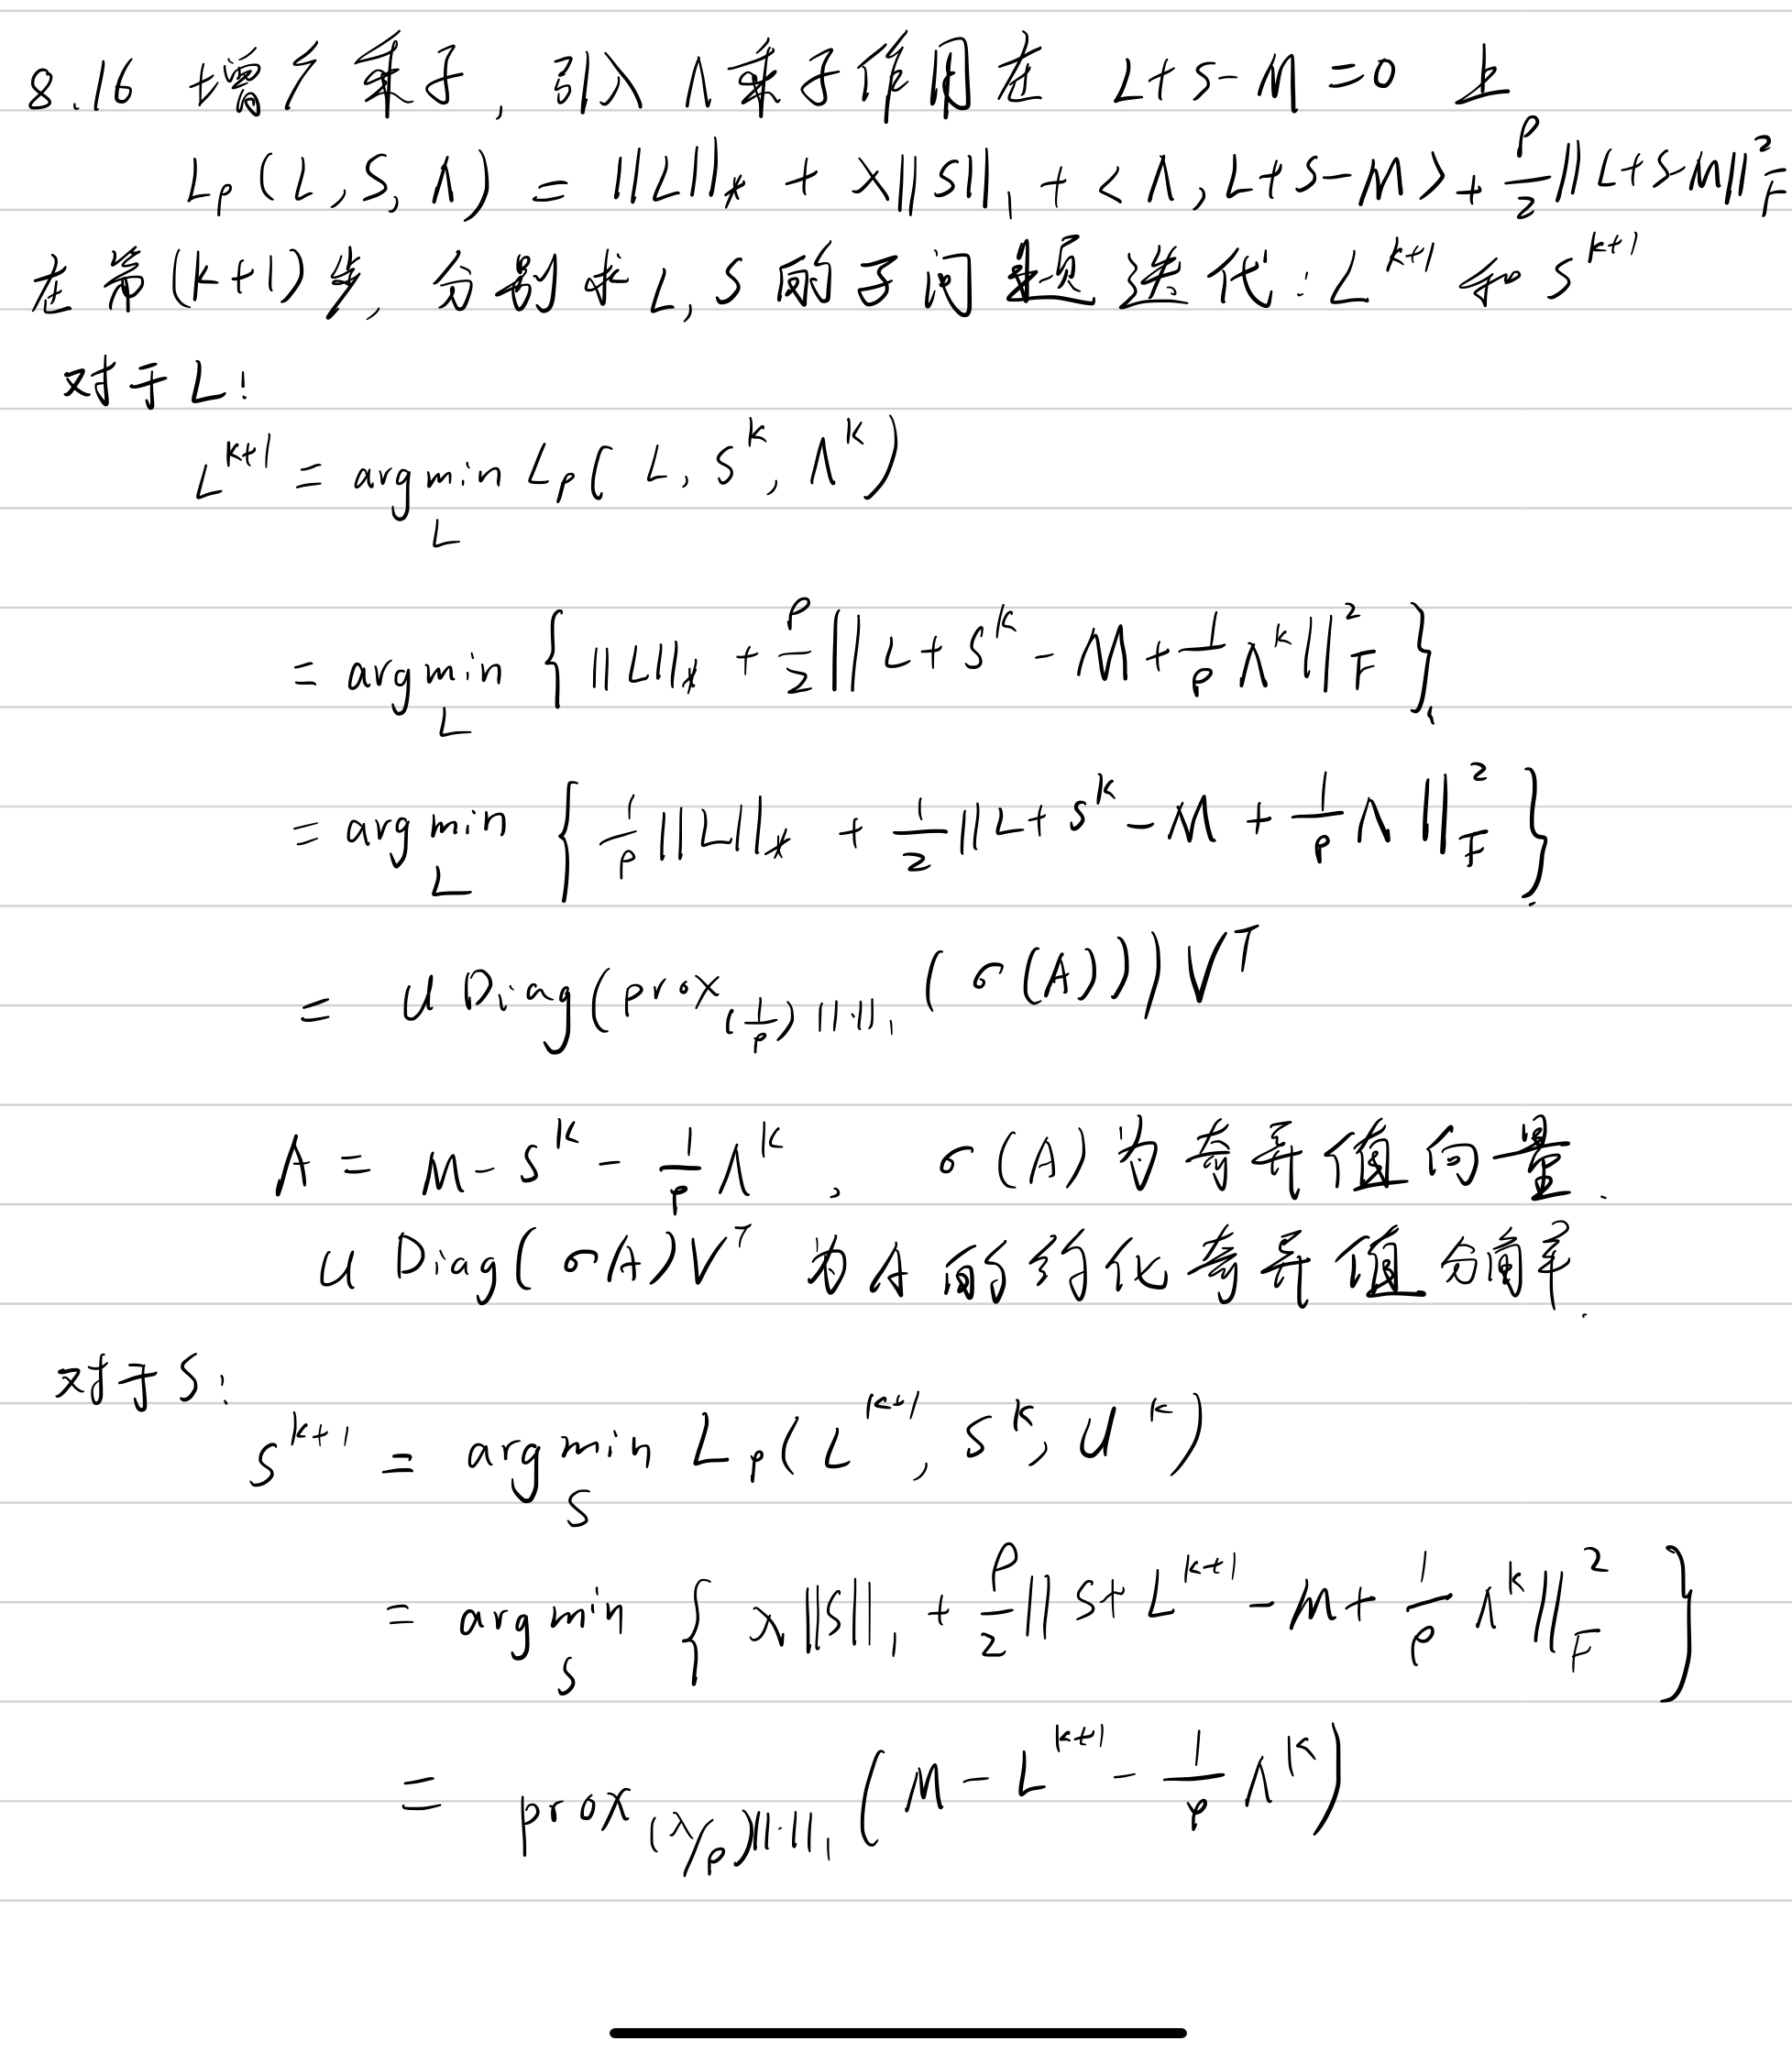 8.16 增广乘子, 引入 Λ 乘子作用在 L+S-M=0 上
L_ρ(L, S, Λ) = ||L||_* + λ||S||_1 + <Λ, L+S-M> + ρ/2 ||L+S-M||_F^2
在第(k+1)步, 分别求 L, S 的子问题迭代: L^{k+1} 和 S^{k+1}
对于 L:
L^{k+1} = argmin_L L_ρ( L, S^k, Λ^k)
= argmin_L { ||L||_* + ρ/2 || L+S^k - M + 1/ρ Λ^k ||_F^2 },
= argmin_L { 1/ρ ||L||_* + 1/2 ||L+S^k - M + 1/ρ Λ ||_F^2 }.
= U Diag(prox_{(1/ρ)||·||_1} (σ(A)))V^T
A = M - S^k - 1/ρ Λ^k, σ(A) 为奇异值向量.
U Diag(σ(A)V^T 为 A 的约化奇异值分解.
对于 S:
S^{k+1} = argmin_S L_ρ(L^{k+1}, S^k, U^k)
= argmin_S { λ||S||_1 + ρ/2 || S+L^{k+1} - M + 1/ρ Λ^k ||_F^2 }
= prox_{(λ/ρ)||·||_1} (M - L^{k+1} - 1/ρ Λ^k)